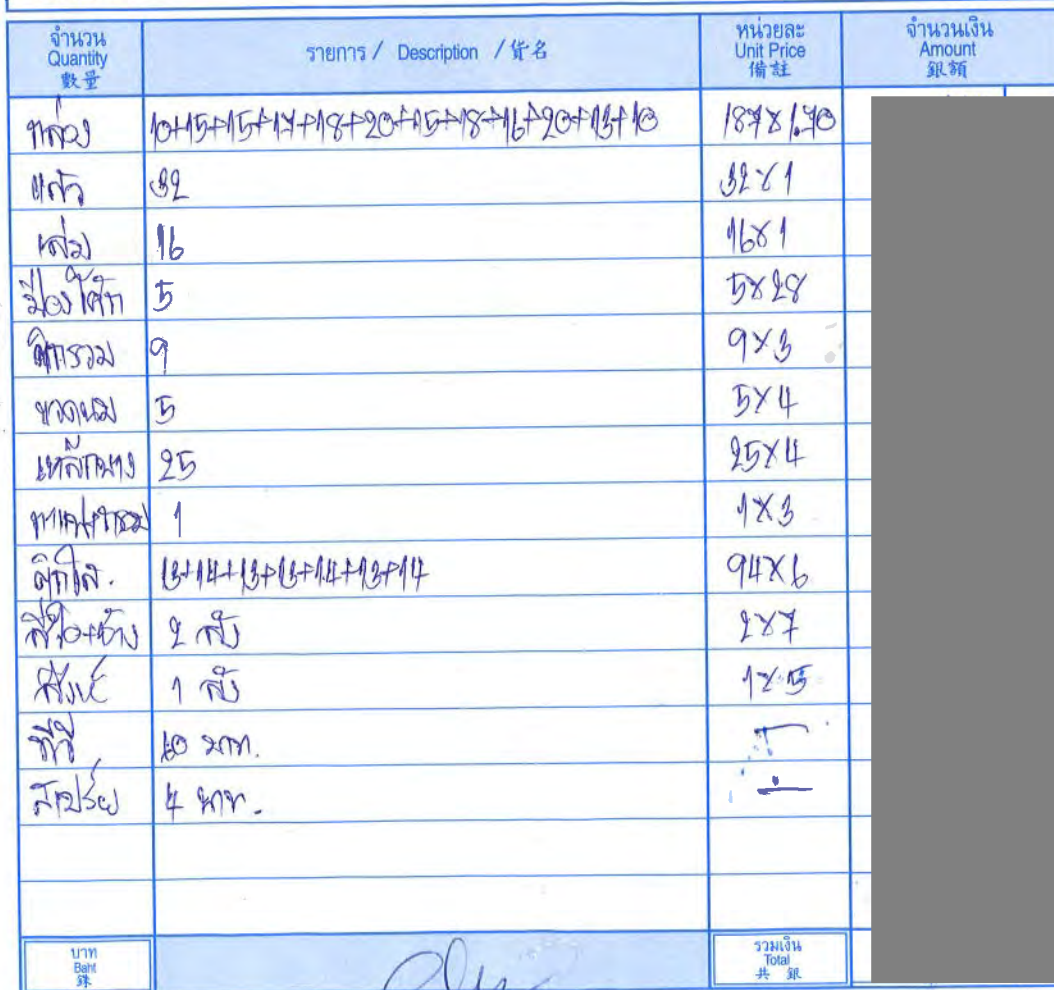 จำนวน Quantity 數量 รายการ / Description / 貨名 หน่วยละ Unit Price 備註 จำนวนเงิน Amount 銀額
กล่อง 10+15+15+17+18+20+15+18+16+20+13+10 187x1.70
แก้ว 32 32x1
เล่ม 16 16x1
5 5x28
9 9x3
ขวดนม 5 5x4
เหล็กบาง 25 25x4
1 1x3
13+14+13+13+14+13+14 94x6
2 ลัง 2x7
สิงห์ 1 ลัง 1x5
ทีวี 10 บาท.
สเปรย์ 4 บาท.
บาท Baht 銖 รวมเงิน Total 共 銀